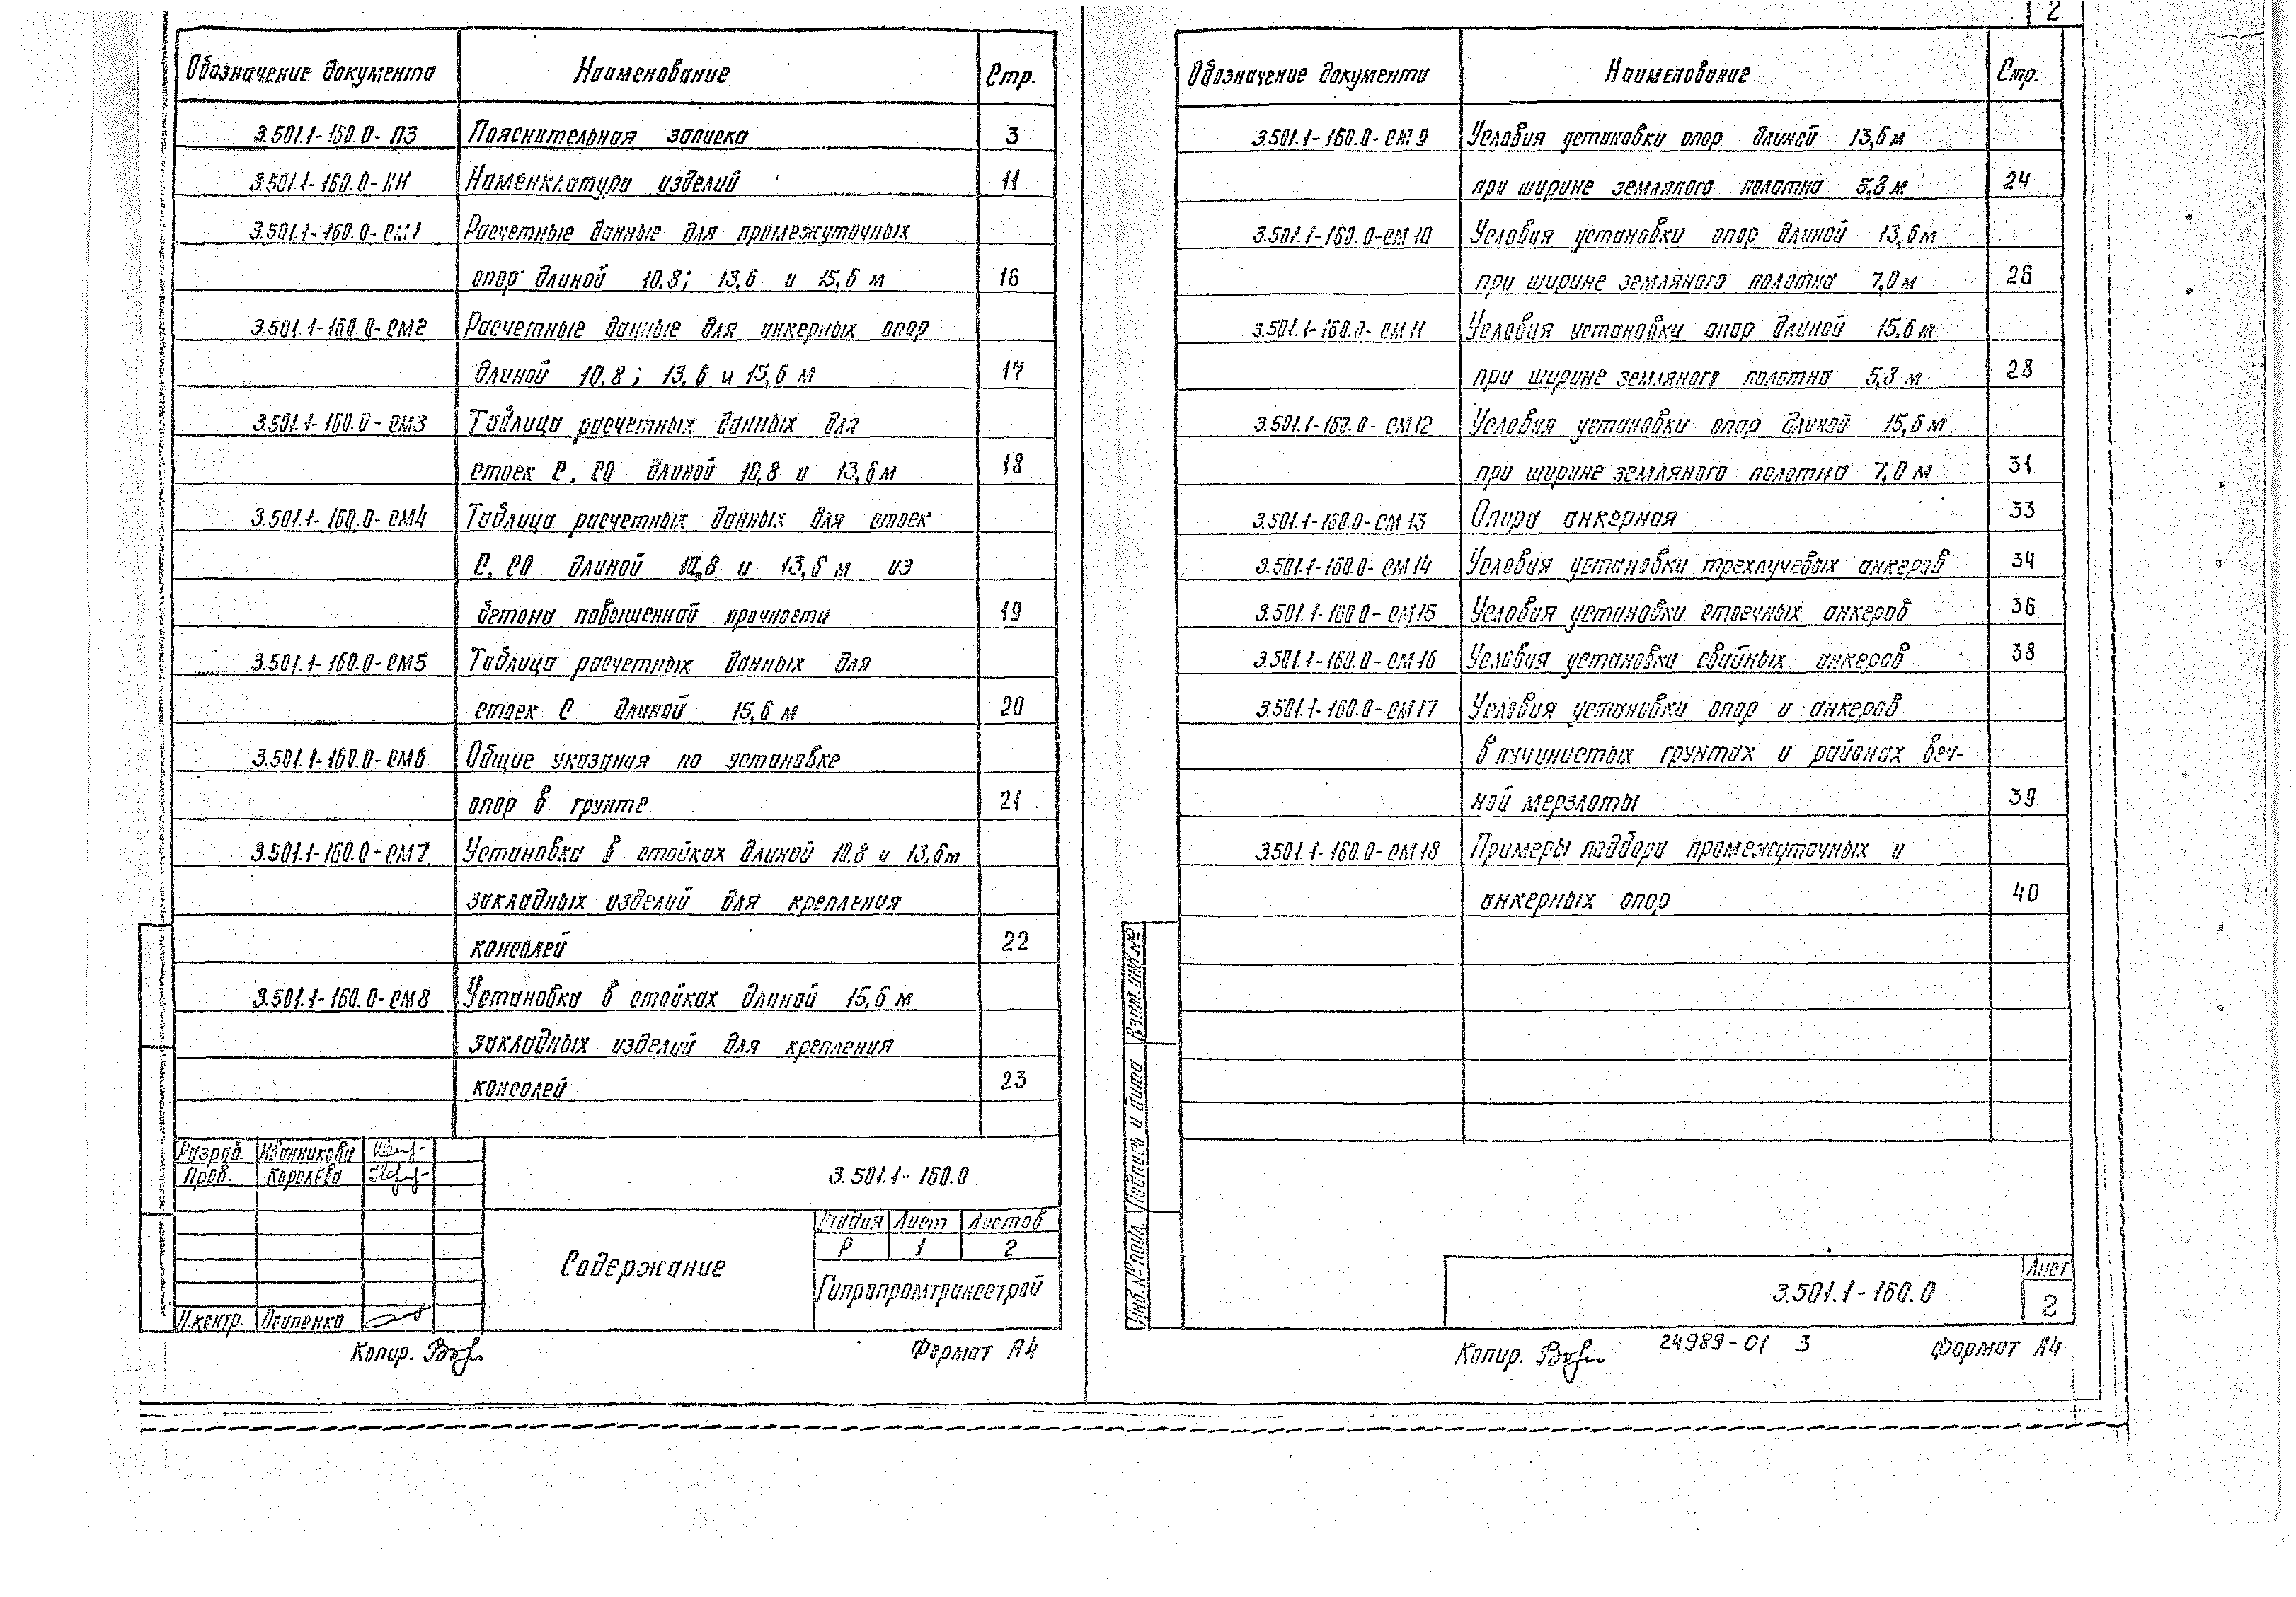 2
Обозначение документа Наименование Стр.
3.501.1-160.0-ПЗ Пояснительная записка 3
3.501.1-160.0-НИ Номенклатура изделий 11
3.501.1-160.0-СМ1 Расчетные данные для промежуточных
опор длиной 10,8; 13,6 и 15,6 м 16
3.501.1-160.0-СМ2 Расчетные данные для анкерных опор
длиной 10,8; 13,6 и 15,6 м 17
3.501.1-160.0-СМ3 Таблица расчетных данных для
стоек С, СО длиной 10,8 и 13,6 м 18
3.501.1-160.0-СМ4 Таблица расчетных данных для стоек
С, СО длиной 10,8 и 13,6 м из
бетона повышенной прочности 19
3.501.1-160.0-СМ5 Таблица расчетных данных для
стоек С длиной 15,6 м 20
3.501.1-160.0-СМ6 Общие указания по установке
опор в грунте 21
3.501.1-160.0-СМ7 Установка в стойках длиной 10.8 и 13,6м
закладных изделий для крепления
консолей 22
3.501.1-160.0-СМ8 Установка в стойках длиной 15,6 м
закладных изделий для крепления
консолей 23
Разраб. Иванникова
Пров. Королева
3.501.1-160.0
Стадия Лист Листов
Р 1 2
Содержание
Гипропромтрансстрой
Н.контр. Осипенко
Копир. Формат А4
Обозначение документа Наименование Стр.
3.501.1-160.0-СМ9 Условия установки опор длиной 13,6 м
при ширине земляного полотна 5,8 м 24
3.501.1-160.0-СМ10 Условия установки опор длиной 13,6 м
при ширине земляного полотна 7,0 м 26
3.501.1-160.0-СМ11 Условия установки опор длиной 15,6 м
при ширине земляного полотна 5,8 м 28
3.501.1-160.0-СМ12 Условия установки опор длиной 15,6 м
при ширине земляного полотна 7,0 м 31
3.501.1-160.0-СМ13 Опора анкерная 33
3.501.1-160.0-СМ14 Условия установки трехлучевых анкеров 34
3.501.1-160.0-СМ15 Условия установки стоечных анкеров 36
3.501.1-160.0-СМ16 Условия установки свайных анкеров 38
3.501.1-160.0-СМ17 Условия установки опор и анкеров
в пучинистых грунтах и районах веч-
ной мерзлоты 39
3.501.1-160.0-СМ18 Примеры подбора промежуточных и
анкерных опор 40
Взам. инв. №
Подпись и дата
Инв. № подл.
3.501.1-160.0
Лист
2
Копир. 24989-01 3 Формат А4